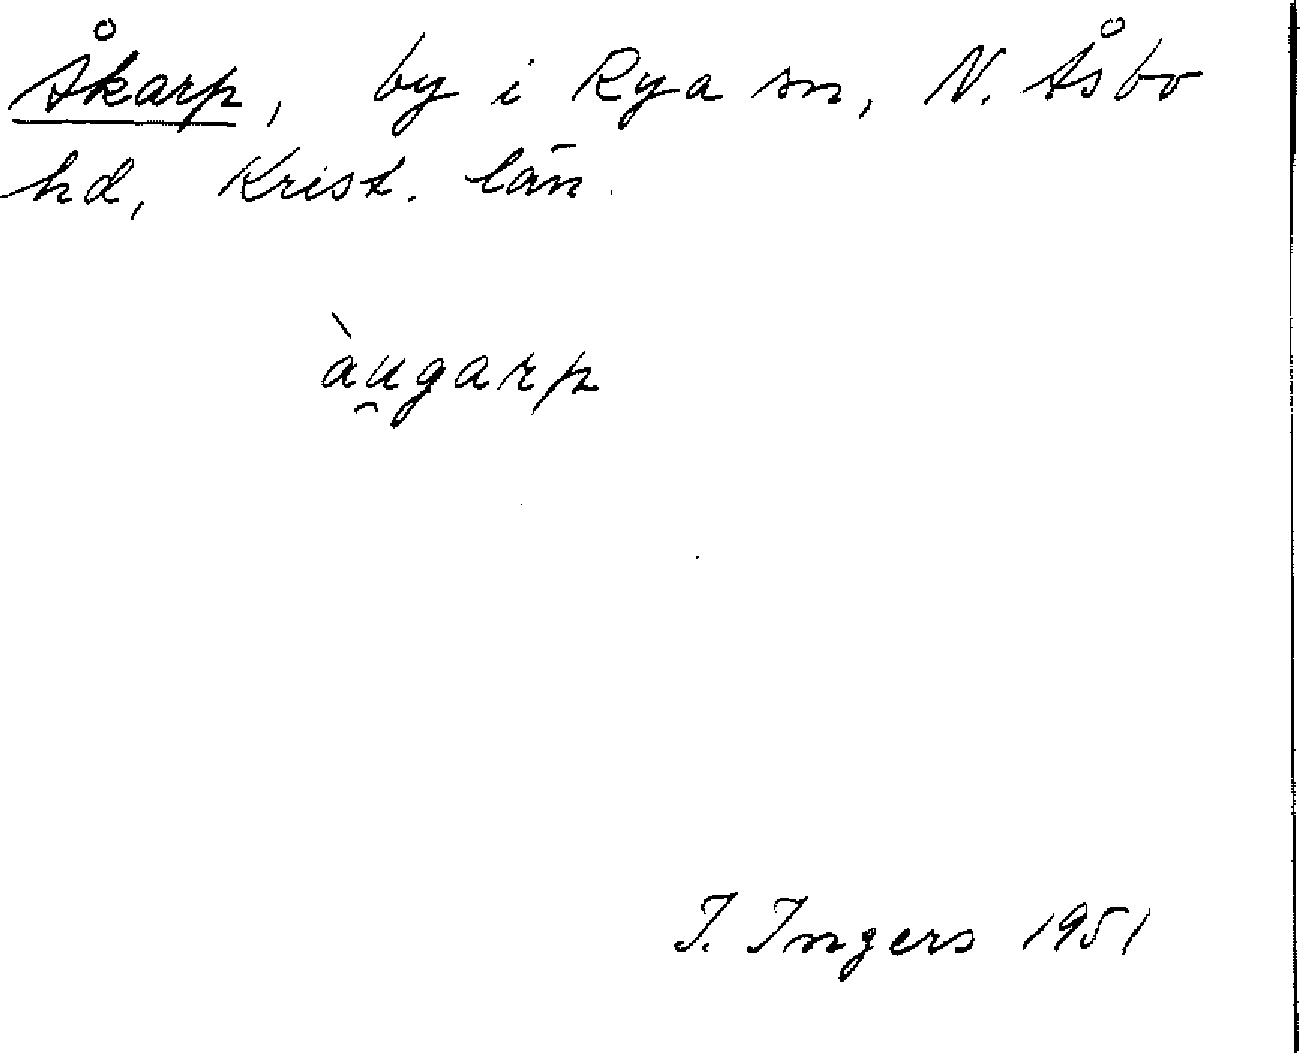 Åkarp, by i Rya sn, N. Åsbo
hd, Krist. län.
àu̯garp
I. Ingers 1951